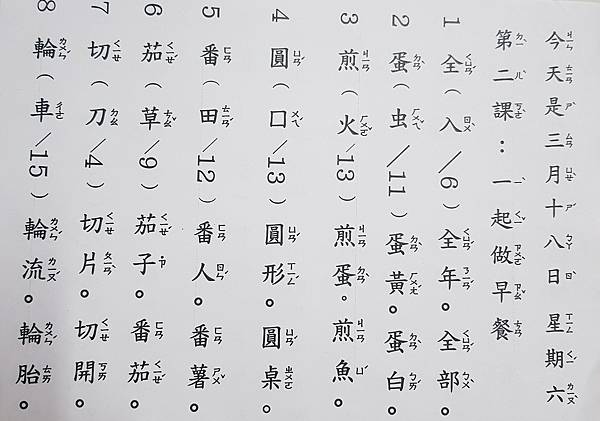 今天是三月十八日星期六
第二課：一起做早餐
1 全（入／6）全年。全部。
2 蛋（虫／11）蛋黃。蛋白。
3 煎（火／13）煎蛋。煎魚。
4 圓（口／13）圓形。圓桌。
5 番（田／12）番人。番薯。
6 茄（草／9）茄子。番茄。
7 切（刀／4）切片。切開。
8 輪（車／15）輪流。輪胎。